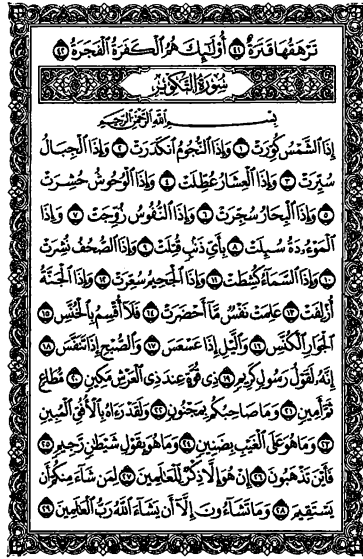 تَرْهَقُهَا قَتَرَةٌ ٤١ أُوْلَٰٓئِكَ هُمُ ٱلْكَفَرَةُ ٱلْفَجَرَةُ ٤٢
سُورَةُ التَّكْوِيرِ
بِسْمِ ٱللَّهِ ٱلرَّحْمَٰنِ ٱلرَّحِيمِ
إِذَا ٱلشَّمْسُ كُوِّرَتْ ١ وَإِذَا ٱلنُّجُومُ ٱنكَدَرَتْ ٢ وَإِذَا ٱلْجِبَالُ
سُيِّرَتْ ٣ وَإِذَا ٱلْعِشَارُ عُطِّلَتْ ٤ وَإِذَا ٱلْوُحُوشُ حُشِرَتْ
٥ وَإِذَا ٱلْبِحَارُ سُجِّرَتْ ٦ وَإِذَا ٱلنُّفُوسُ زُوِّجَتْ ٧ وَإِذَا
ٱلْمَوْءُۥدَةُ سُئِلَتْ ٨ بِأَىِّ ذَنۢبٍ قُتِلَتْ ٩ وَإِذَا ٱلصُّحُفُ نُشِرَتْ
١٠ وَإِذَا ٱلسَّمَآءُ كُشِطَتْ ١١ وَإِذَا ٱلْجَحِيمُ سُعِّرَتْ ١٢ وَإِذَا ٱلْجَنَّةُ
أُزْلِفَتْ ١٣ عَلِمَتْ نَفْسٌ مَّآ أَحْضَرَتْ ١٤ فَلَآ أُقْسِمُ بِٱلْخُنَّسِ ١٥
ٱلْجَوَارِ ٱلْكُنَّسِ ١٦ وَٱلَّيْلِ إِذَا عَسْعَسَ ١٧ وَٱلصُّبْحِ إِذَا تَنَفَّسَ ١٨
إِنَّهُۥ لَقَوْلُ رَسُولٍ كَرِيمٍ ١٩ ذِى قُوَّةٍ عِندَ ذِى ٱلْعَرْشِ مَكِينٍ ٢٠ مُّطَاعٍ
ثَمَّ أَمِينٍ ٢١ وَمَا صَاحِبُكُم بِمَجْنُونٍ ٢٢ وَلَقَدْ رَءَاهُ بِٱلْأُفُقِ ٱلْمُبِينِ
٢٣ وَمَا هُوَ عَلَى ٱلْغَيْبِ بِضَنِينٍ ٢٤ وَمَا هُوَ بِقَوْلِ شَيْطَٰنٍ رَّجِيمٍ ٢٥
فَأَيْنَ تَذْهَبُونَ ٢٦ إِنْ هُوَ إِلَّا ذِكْرٌ لِّلْعَٰلَمِينَ ٢٧ لِمَن شَآءَ مِنكُمْ أَن
يَسْتَقِيمَ ٢٨ وَمَا تَشَآءُونَ إِلَّآ أَن يَشَآءَ ٱللَّهُ رَبُّ ٱلْعَٰلَمِينَ ٢٩